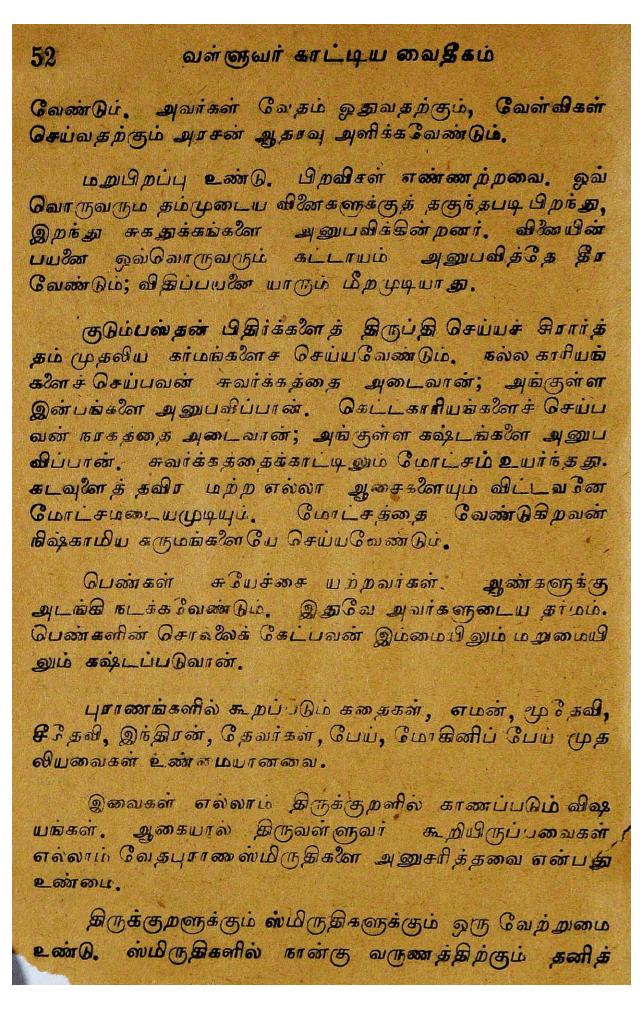 52 வள்ளுவர் காட்டிய வைதீகம்
வேண்டும். அவர்கள் வேதம் ஓதுவதற்கும், வேள்விகள்
செய்வதற்கும் அரசன் ஆதரவு அளிக்கவேண்டும்.
மறுபிறப்பு உண்டு. பிறவிகள் எண்ணற்றவை. ஒவ்
வொருவரும் தம்முடைய வினைகளுக்குத் தகுந்தபடி பிறந்து,
இறந்து சுகதுக்கங்களை அனுபவிக்கின்றனர். வினையின்
பயனை ஒவ்வொருவரும் கட்டாயம் அனுபவித்தே தீர
வேண்டும்; விதிப்பயனை யாரும் மீறமுடியாது.
குடும்பஸ்தன் பிதிர்க்களைத் திருப்தி செய்யச் சிரார்த்
தம் முதலிய கர்மங்களைச் செய்யவேண்டும். நல்ல காரியங்
களைச் செய்பவன் சுவர்க்கத்தை அடைவான்; அங்குள்ள
இன்பங்களை அனுபவிப்பான். கெட்டகாரியங்களைச் செய்ப
வன் நரகத்தை அடைவான்; அங்குள்ள கஷ்டங்களை அனுப
விப்பான். சுவர்க்கத்தைக்காட்டிலும் மோட்சம் உயர்ந்தது.
கடவுளைத் தவிர மற்ற எல்லா ஆசைகளையும் விட்டவனே
மோட்சமடையமுடியும். மோட்சத்தை வேண்டுகிறவன்
நிஷ்காமிய கருமங்களையே செய்யவேண்டும்.
பெண்கள் சுயேச்சை யற்றவர்கள். ஆண்களுக்கு
அடங்கி நடக்கவேண்டும். இதுவே அவர்களுடைய தர்மம்.
பெண்களின் சொல்லைக் கேட்பவன் இம்மையிலும் மறுமையி
லும் கஷ்டப்படுவான்.
புராணங்களில் கூறப்படும் கதைகள், எமன், மூதேவி,
சீதேவி, இந்திரன், தேவர்கள், பேய், மோகினிப் பேய் முத
லியவைகள் உண்மையானவை.
இவைகள் எல்லாம் திருக்குறளில் காணப்படும் விஷ
யங்கள். ஆகையால் திருவள்ளுவர் கூறியிருப்பவைகள்
எல்லாம் வேதபுராணஸ்மிருதிகளை அனுசரித்தவை என்பது
உண்மை.
திருக்குறளுக்கும் ஸ்மிருதிகளுக்கும் ஒரு வேற்றுமை
உண்டு. ஸ்மிருதிகளில் நான்கு வருணத்திற்கும் தனித்